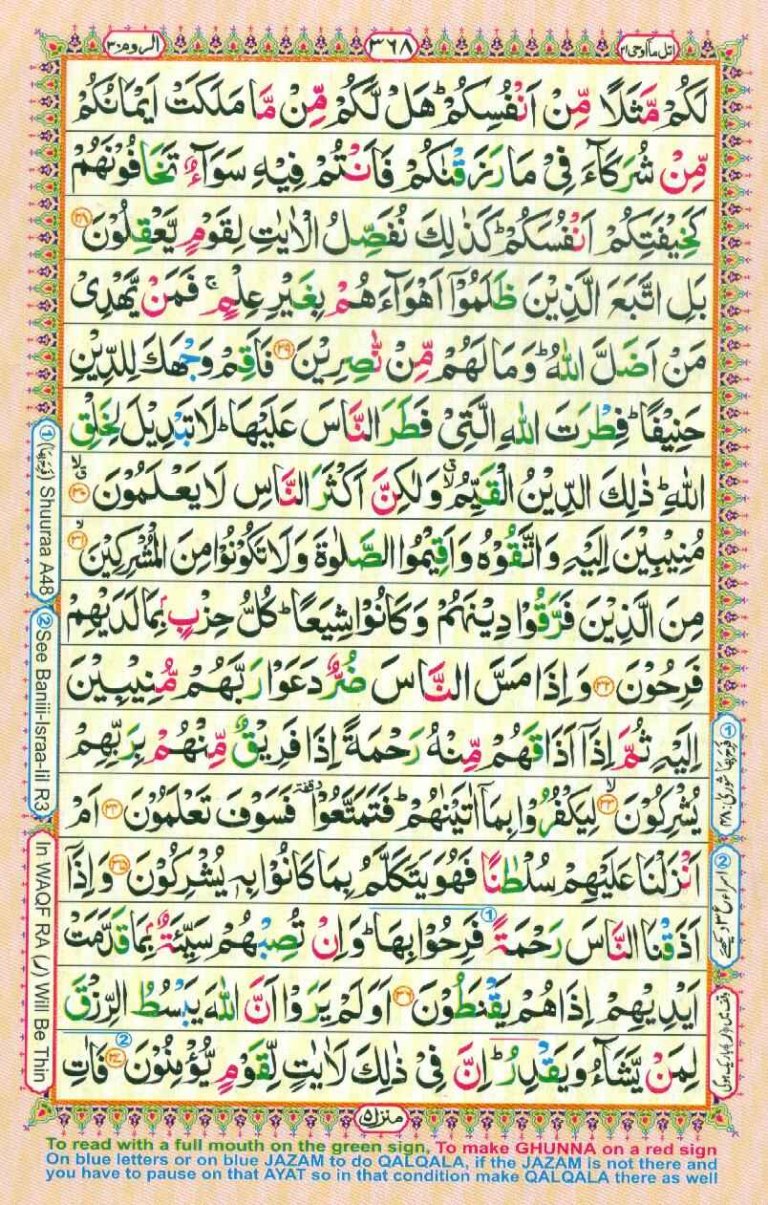 اتل ما اوحی ۲۱
۳۶۸
الروم ۳۰
لَكُمْ مَّثَلًا مِّنْ اَنْفُسِكُمْ ؕ هَلْ لَّكُمْ مِّنْ مَّا مَلَكَتْ اَيْمَانُكُمْ
مِّنْ شُرَكَآءَ فِىْ مَا رَزَقْنٰكُمْ فَاَنْتُمْ فِيْهِ سَوَآءٌ تَخَافُوْنَهُمْ
كَخِيْفَتِكُمْ اَنْفُسَكُمْ ؕ كَذٰلِكَ نُفَصِّلُ الْاٰيٰتِ لِقَوْمٍ يَّعْقِلُوْنَ ﴿۲۸﴾
بَلِ اتَّبَعَ الَّذِيْنَ ظَلَمُوْۤا اَهْوَآءَهُمْ بِغَيْرِ عِلْمٍ ۚ فَمَنْ يَّهْدِىْ
مَنْ اَضَلَّ اللّٰهُ ؕ وَمَا لَهُمْ مِّنْ نّٰصِرِيْنَ ﴿۲۹﴾ فَاَقِمْ وَجْهَكَ لِلدِّيْنِ
حَنِيْفًا ؕ فِطْرَتَ اللّٰهِ الَّتِىْ فَطَرَ النَّاسَ عَلَيْهَا ؕ لَا تَبْدِيْلَ لِخَلْقِ
اللّٰهِ ؕ ذٰلِكَ الدِّيْنُ الْقَيِّمُ ۙۗ وَلٰكِنَّ اَكْثَرَ النَّاسِ لَا يَعْلَمُوْنَ ۗۙ ﴿۳۰﴾
مُنِيْبِيْنَ اِلَيْهِ وَاتَّقُوْهُ وَاَقِيْمُوا الصَّلٰوةَ وَلَا تَكُوْنُوْا مِنَ الْمُشْرِكِيْنَ ۙ ﴿۳۱﴾
مِنَ الَّذِيْنَ فَرَّقُوْا دِيْنَهُمْ وَكَانُوْا شِيَعًا ؕ كُلُّ حِزْبٍۭ بِمَا لَدَيْهِمْ
فَرِحُوْنَ ﴿۳۲﴾ وَاِذَا مَسَّ النَّاسَ ضُرٌّ دَعَوْا رَبَّهُمْ مُّنِيْبِيْنَ
اِلَيْهِ ثُمَّ اِذَاۤ اَذَاقَهُمْ مِّنْهُ رَحْمَةً اِذَا فَرِيْقٌ مِّنْهُمْ بِرَبِّهِمْ
يُشْرِكُوْنَ ۙ ﴿۳۳﴾ لِيَكْفُرُوْا بِمَاۤ اٰتَيْنٰهُمْ ؕ فَتَمَتَّعُوْا وقفة فَسَوْفَ تَعْلَمُوْنَ ﴿۳۴﴾ اَمْ
اَنْزَلْنَا عَلَيْهِمْ سُلْطٰنًا فَهُوَ يَتَكَلَّمُ بِمَا كَانُوْا بِهٖ يُشْرِكُوْنَ ﴿۳۵﴾ وَاِذَاۤ
اَذَقْنَا النَّاسَ رَحْمَةً فَرِحُوْا بِهَا ؕ وَاِنْ تُصِبْهُمْ سَيِّئَةٌۢ بِمَا قَدَّمَتْ
اَيْدِيْهِمْ اِذَا هُمْ يَقْنَطُوْنَ ﴿۳۶﴾ اَوَلَمْ يَرَوْا اَنَّ اللّٰهَ يَبْسُطُ الرِّزْقَ
لِمَنْ يَّشَآءُ وَيَقْدِرُ ؕ اِنَّ فِىْ ذٰلِكَ لَاٰيٰتٍ لِّقَوْمٍ يُّؤْمِنُوْنَ ﴿۳۷﴾ فَاٰتِ
① (فَرِحَ بِهَا) Shuuraa A48
② See Baniii-Israa-Iil R3
In WAQF RA (ر) Will Be Thin
① فَرِحَ بِهَا شورٰی: ۴۸
منزل ۵
To read with a full mouth on the green sign, To make GHUNNA on a red sign
On blue letters or on blue JAZAM to do QALQALA, if the JAZAM is not there and
you have to pause on that AYAT so in that condition make QALQALA there as well